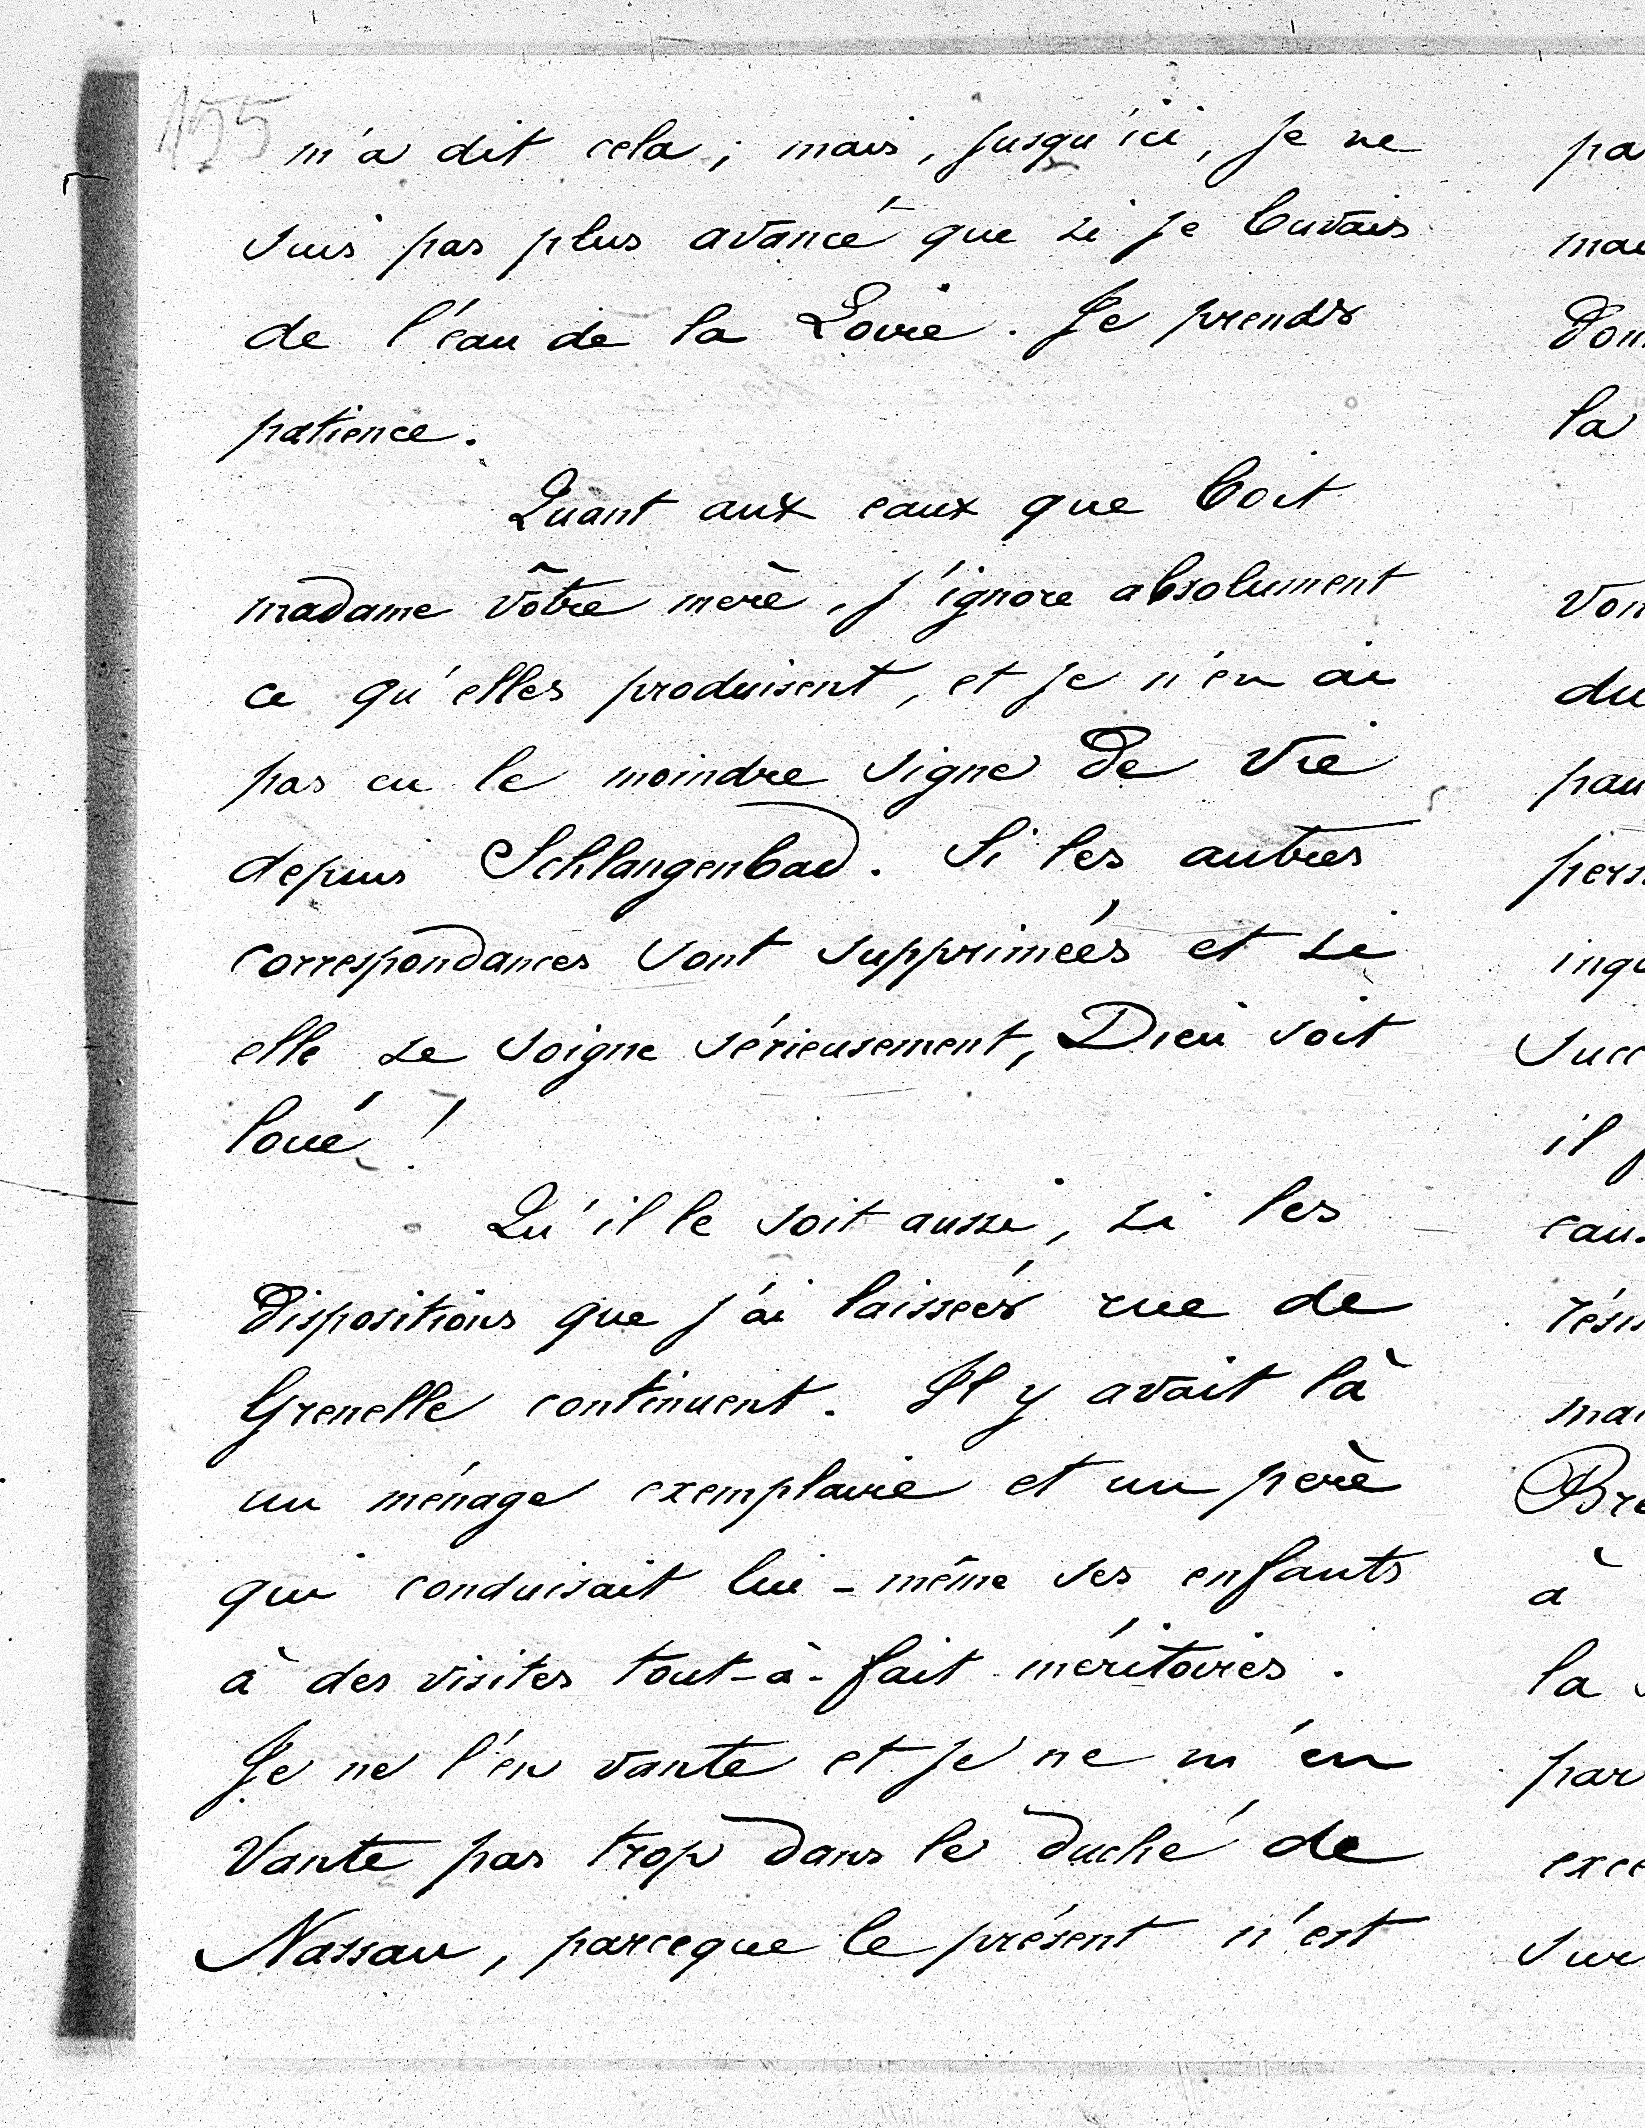 155
m'a dit cela ; mais, jusqu'ici, je ne
suis pas plus avancé que si je buvais
de l'eau de la Loire. Je prends
patience.
Quant aux eaux que boit
madame vôtre mère, j'ignore absolument
ce qu'elles produisent, et je n'en ai
pas eu le moindre signe de vie
depuis Schlangenbad. Si les autres
correspondances sont supprimées et si
elle se soigne sérieusement, Dieu soit
loué !
Qu'il le soit aussi, si les
dispositions que j'ai laissées rue de
Grenelle continuent. Il y avait là
un ménage exemplaire et un père
qui conduisait lui-même ses enfants
à des visites tout-à-fait méritoires.
Je ne l'en vante et je ne m'en
vante pas trop dans le duché de
Nassau, parceque le présent n'est
pa
mai
Don
la
von
du
pau
pers
inqu
succ
il
cau
résu
mai
Bre
à
la
par
exce
sur